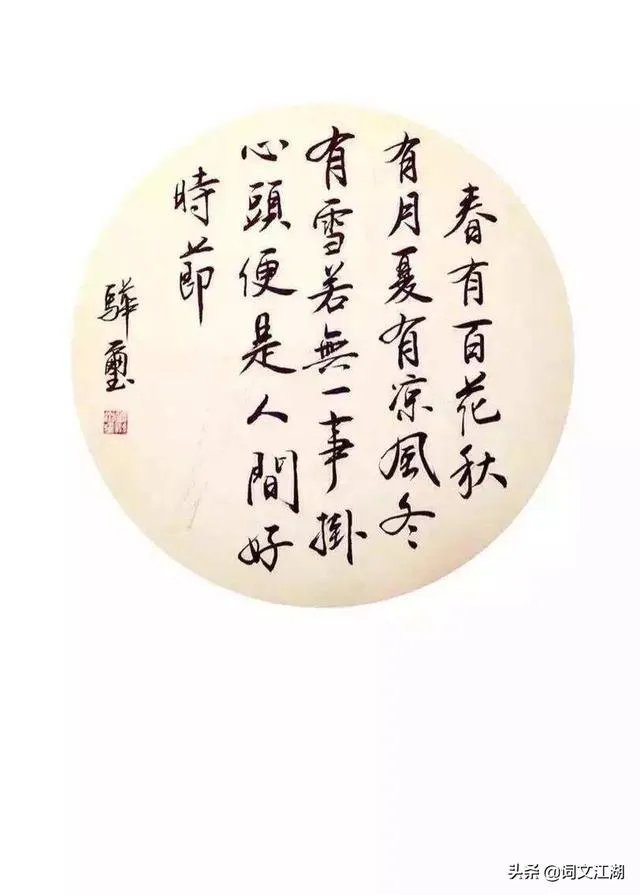 春有百花秋
有月夏有凉風冬
有雪若無一事掛
心頭便是人間好
時莭
驊璽
头条 @词文江湖